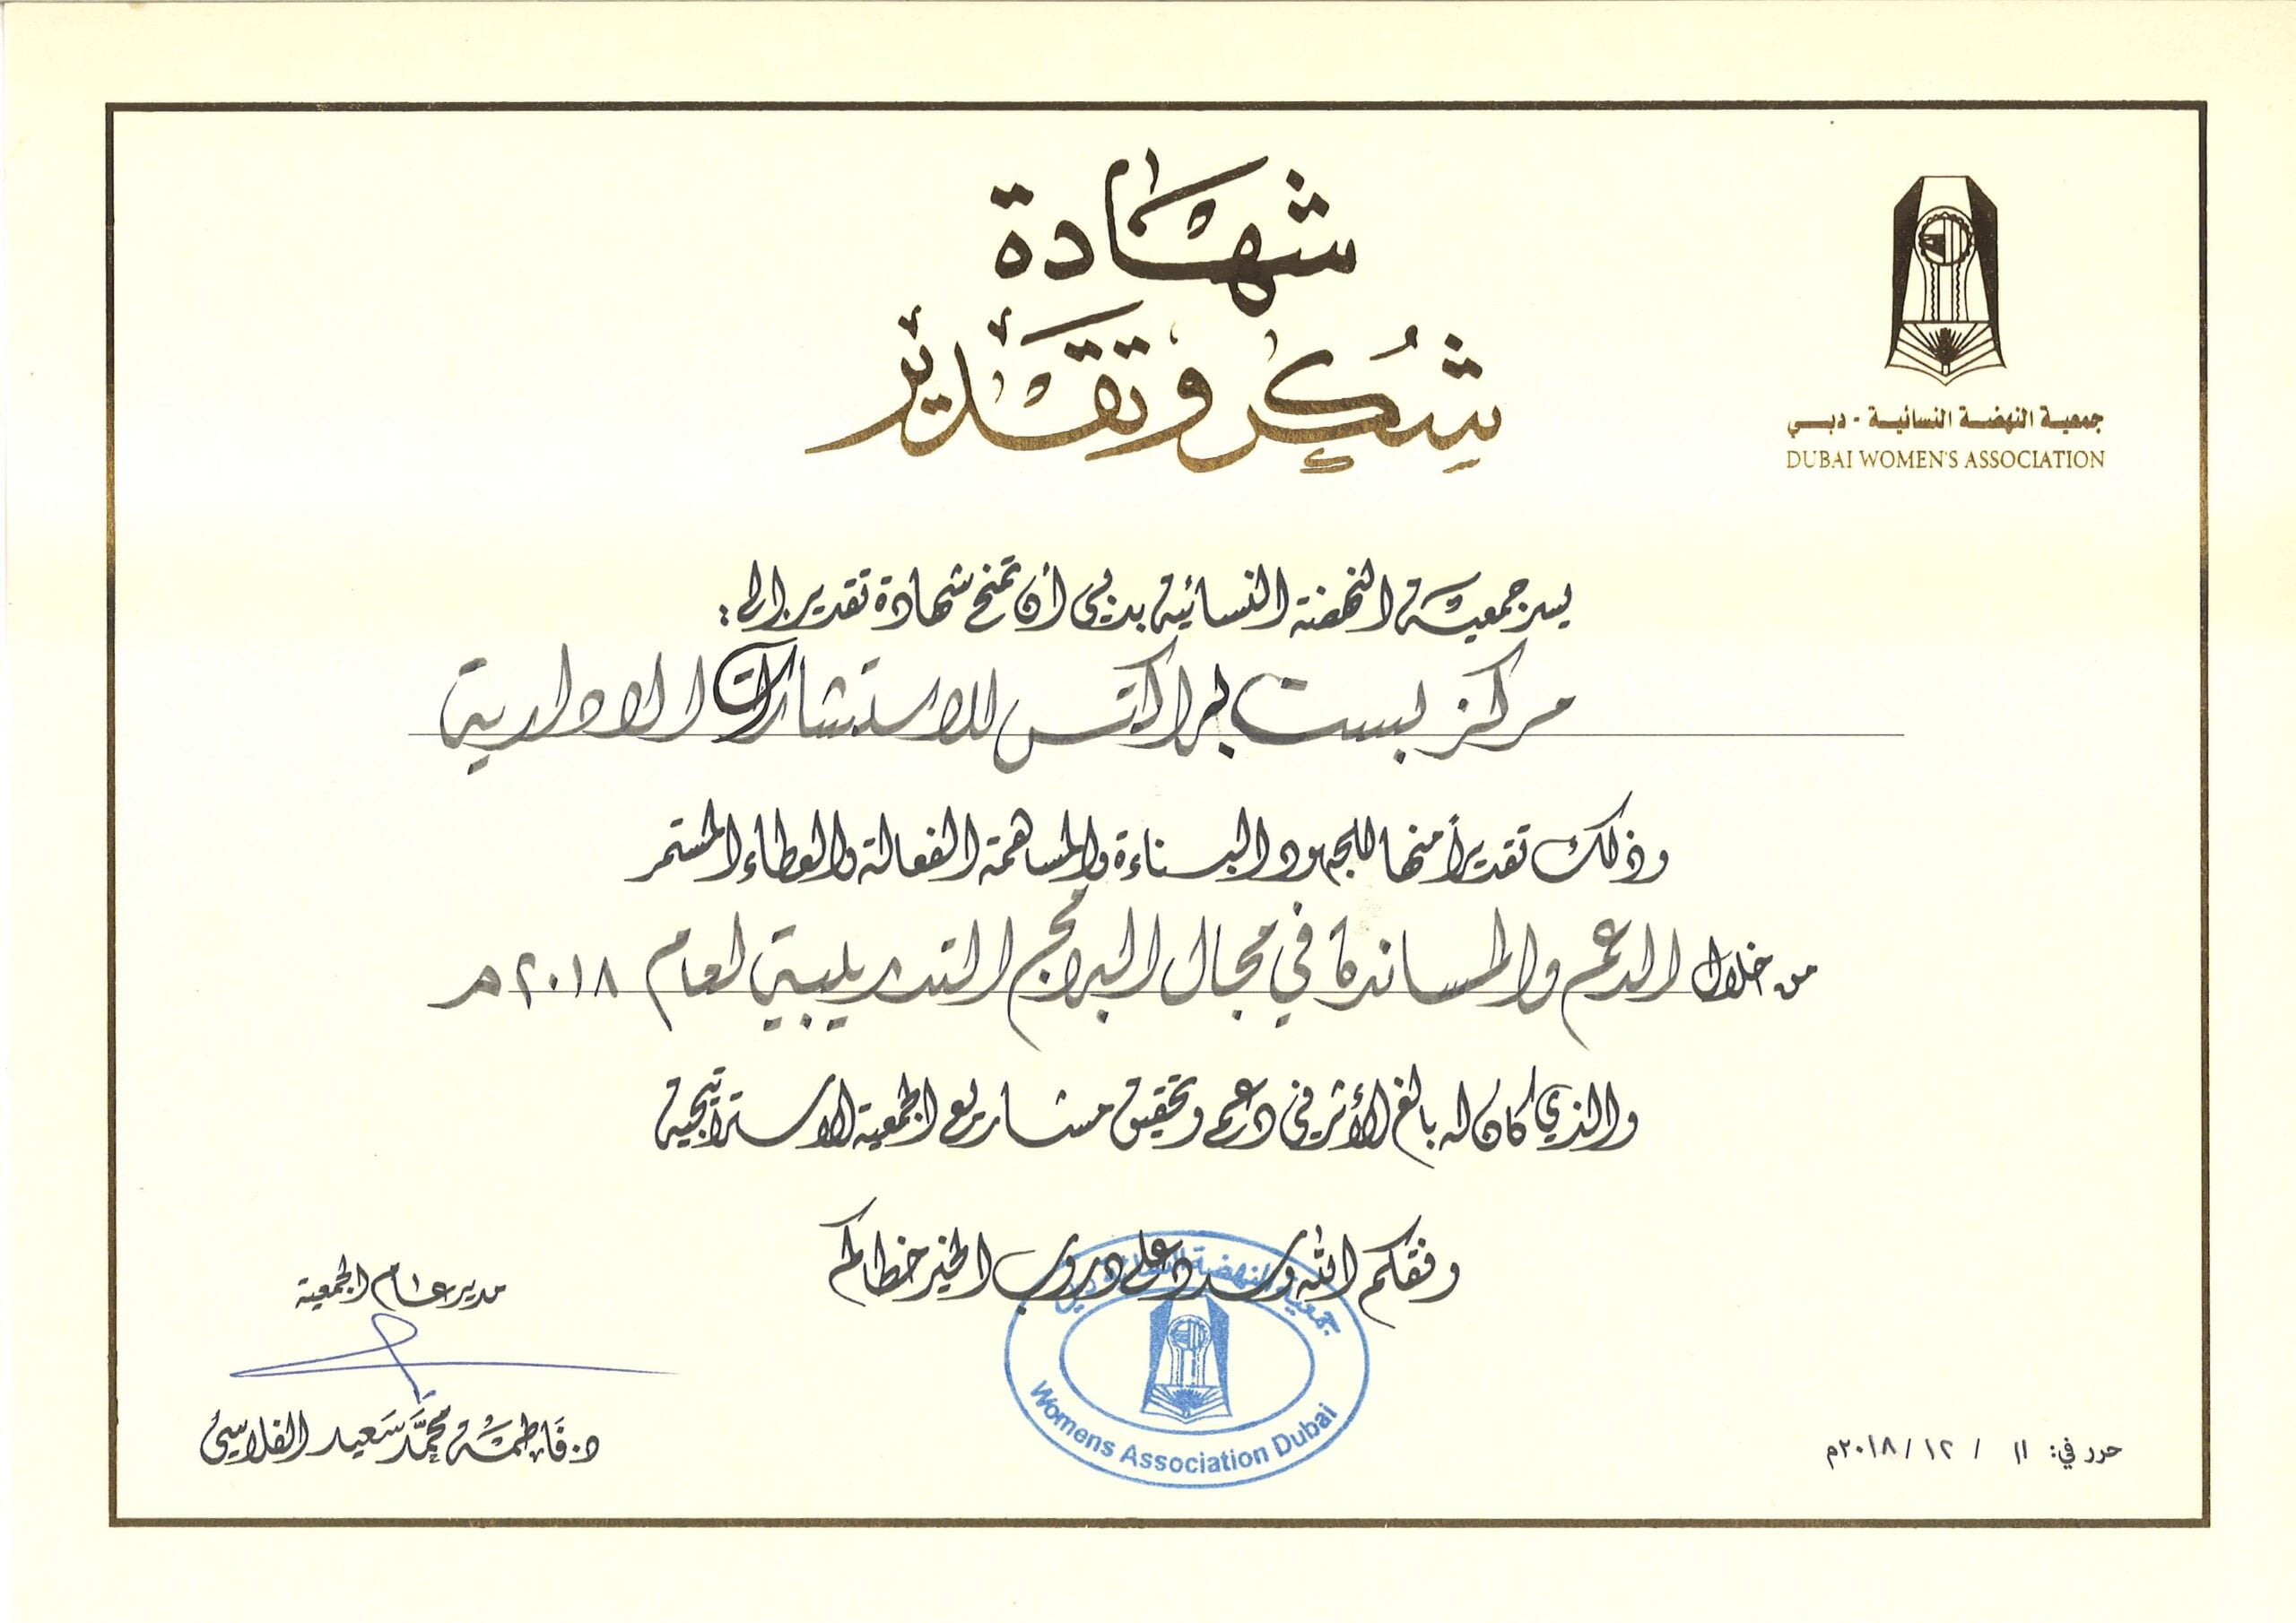 شهادة
شكر وتقدير
جمعية النهضة النسائية - دبي
DUBAI WOMEN'S ASSOCIATION
يسر جمعية النهضة النسائية بدبي أن تمنح شهادة تقدير إلى :
مركز بست براكتس للاستشارات الادارية
وذلك تقديراً منها للجهود البناءة والمساهمة الفعالة والعطاء المستمر
من خلال الدعم والمساندة في مجال البرامج التدريبية لعام ٢٠١٨م
والذي كان له بالغ الأثر في دعم وتحقيق مشاريع الجمعية الاستراتيجية
وفقكم الله وسدد على دروب الخير خطاكم
مدير عام الجمعية
د. فَاطِمَة مُحَمَّد سَعيد الفلاسي
جمعية النهضة النسائية دبي
Womens Association Dubai
حرر في: ١١ / ١٢ / ٢٠١٨م